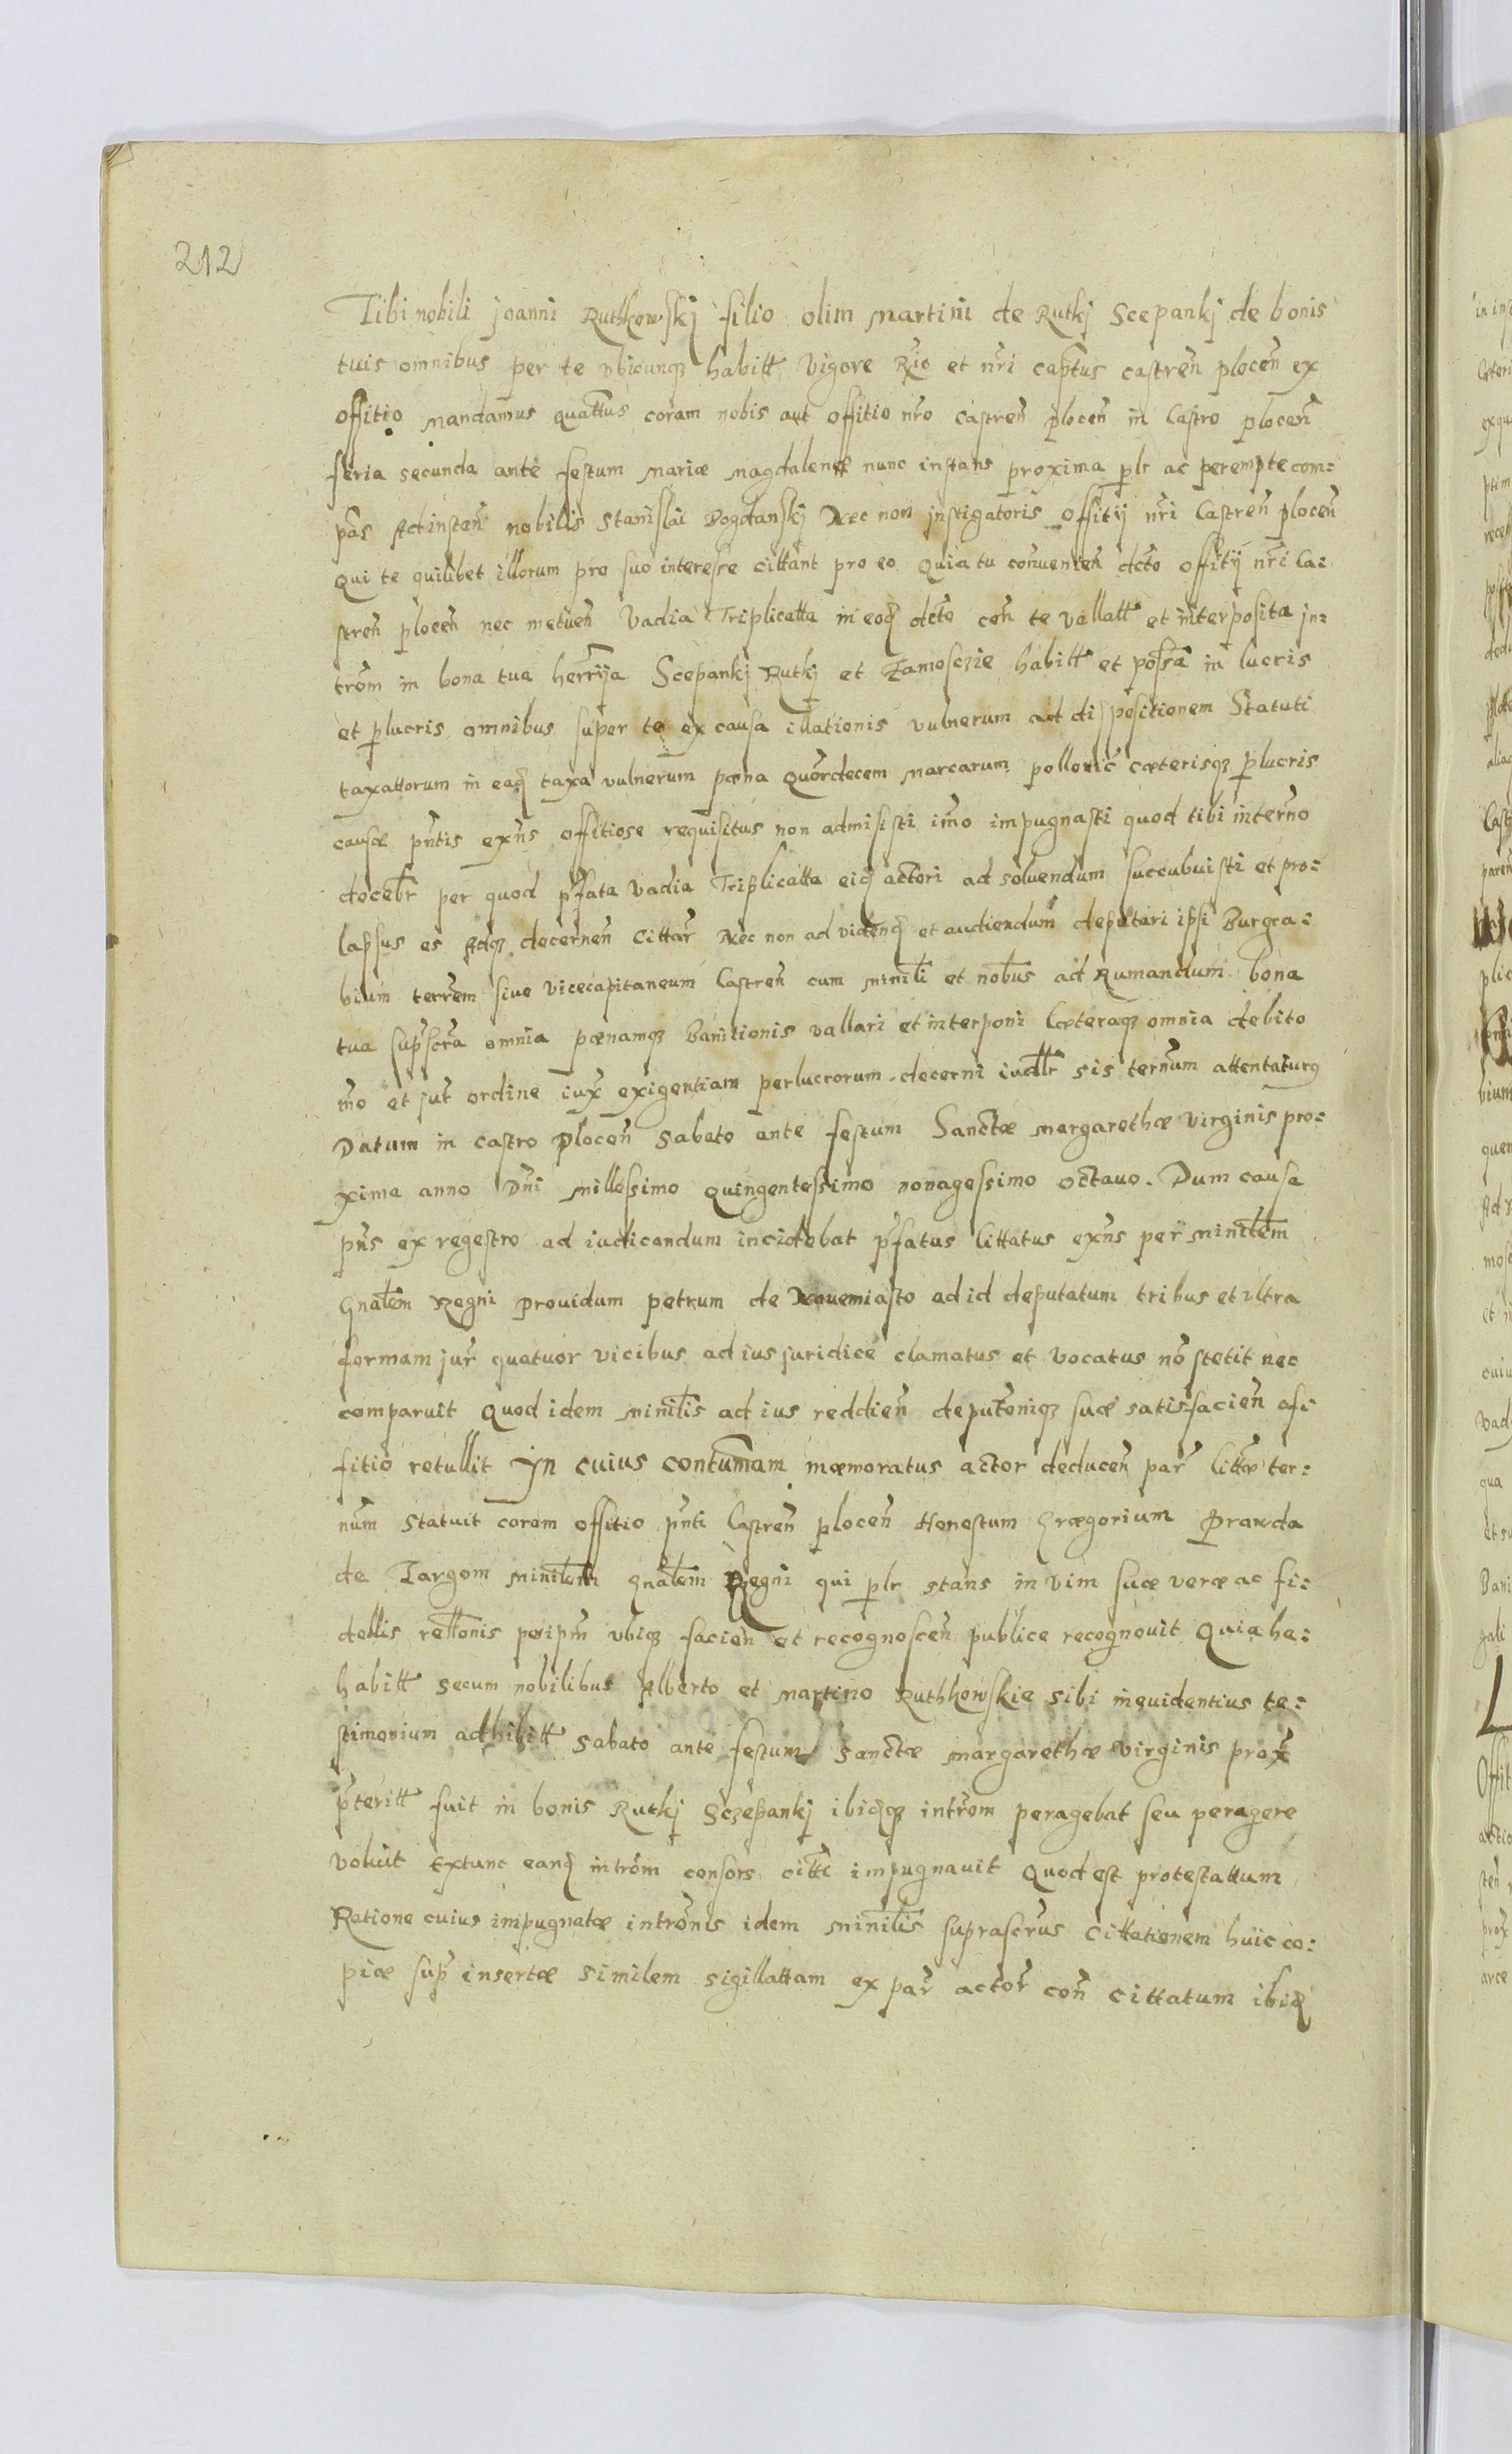 212
Tibi nobili joanni Ruthkowskj filio olim Martini de Rutkj Scepankj de bonis
tuis omnibus per te vbicunqꝫ habitt Vigore Rio et nri captus castreñ ploceñ ex
offitio Mandamus quattus coram nobis aut offitio nro castreñ ploceñ in Castro ploceñ
feria secunda ante festum Mariæ Magdalenæ nunc instans proxima plr ac perempte com:
pas Ad instañ nobilis Stanislai Bogdanskj Nec non jnstigatoris offitij nri Castreñ ploceñ
Qui te quilibet illorum pro suo interesse cittant pro eo Quia tu conuenieñ dcto offitij nri Ca:
streñ ploceñ nec metueñ Vadia Triplicatta in eod dcto coñ te vallatt et interposita jn:
trom in bona tua herrija Scepankj Rutkj et Zamosczie habitt et possa in lucris
et plucris omnibus super te ex causa illationis vulnerum ad dispositionem Statuti
taxattorum in eaq taxa vulnerum pæna Quordecem Marcarum pollonic cæterisqꝫ plucris
causæ pntis exñs offitiose requisitus non admisisti imo impugnasti quod tibi in termo
docebr per quod pfata Vadia Triplicatta eiq actori ad soluendum succubuisti et pro:
lapsus es Adqꝫ decerneñ Cittar Nec non ad videnq et audiendum deputari ipsi Burgra:
bium terrem siue Vicecapitaneum Castreñ cum Minili et nobus ad Rumandum bona
tua supscra omnia pænamqꝫ Banitionis vallari et interponi Cæteraqꝫ omnia debito
mo et jur ordine iux exigentiam perlucrorum decerni iudllr sis ternum attentaturus
Datum in castro Ploceñ Sabato ante festum Sanctæ Margarethæ Virginis pro:
xima anno Dni Millessimo Quingentessimo nonagessimo octauo. Dum causa
pñs ex regestro ad iudicandum incidebat pfatus Cittatus exñs per Minilem
Gnalem Regni prouidum petrum de Nouemiasto ad id deputatum tribus et vltra
formam jur quatuor vicibus ad ius juridice clamatus et vocatus no stetit nec
comparuit Quod idem Minilis ad ius reddieñ deputoniqꝫ suæ satisfacieñ of:
fitio retullit Jn cuius contumam mæmoratus actor deduceñ par Cittæ ter:
num Statuit coram offitio pnti Castreñ ploceñ Honestum Grægorium Prawda
de Targom Minilem Gnalem Regni qui plr stans in vim suæ veræ ac fi:
dellis rettonis per ipm vbiqꝫ facieñ et recognosceñ publice recognouit Quia ha:
habitt secum nobilibus Alberto et Martino Ruthkowskie sibi in euidentius te:
stimonium adhibitt Sabato ante festum Sanctæ Margarethæ Virginis prox
pteritt fuit in bonis Rutkj Sczepankj ibiqꝫ introm peragebat seu peragere
voluit Extunc eanq introm consors citti impugnauit Quod est protestattum
Ratione cuius impugnatæ intronis idem Minilis suprascrus Cittationem huic co:
piæ sup insertæ similem sigillattam ex par actor coñ cittatum ibiq